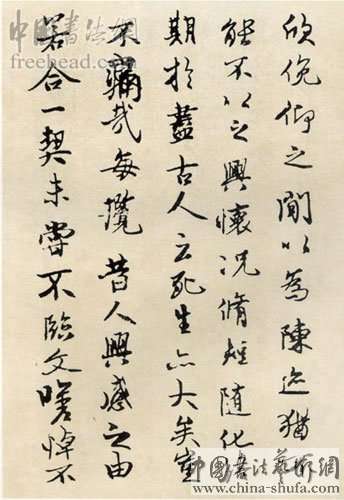 欣俛仰之閒以為陳迹猶不
能不以之興懷况脩短隨化終
期於盡古人云死生亦大矣豈
不痛哉每攬昔人興感之由
若合一契未嘗不臨文嗟悼不
中國書法網
freehead.com
中國書法藝術網
http://www.china-shufa.com